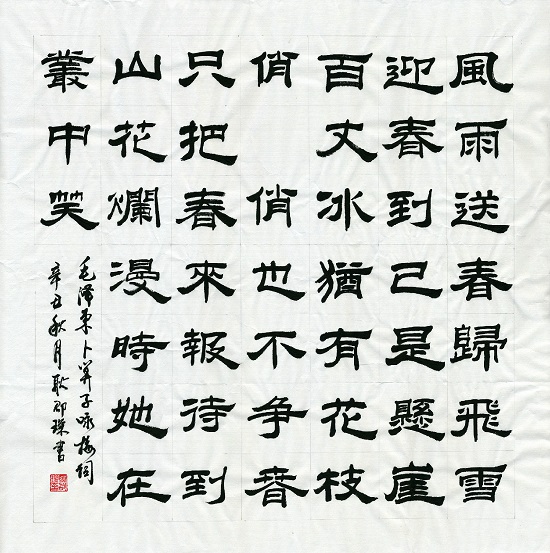 風雨送春歸飛雪
迎春到已是懸崖
百丈冰猶有花枝
俏 俏也不争春
只把春來報待到
山花爛漫時她在
叢中笑
毛澤東卜算子咏梅詞
辛丑秋月耿書